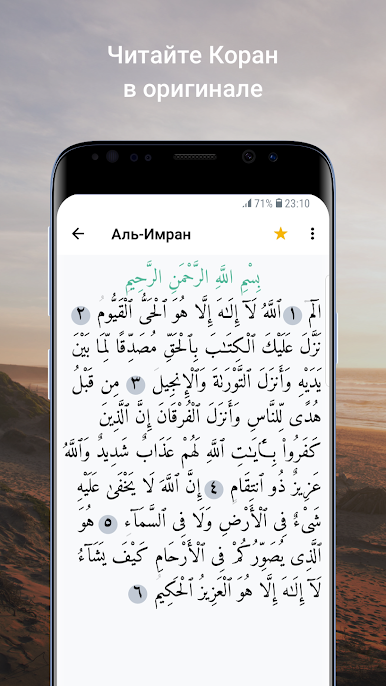 Читайте Коран
в оригинале
71% 23:10
Аль-Имран
بِسْمِ اللَّهِ الرَّحْمَنِ الرَّحِيمِ
الٓمٓ ١ ٱللَّهُ لَآ إِلَـٰهَ إِلَّا هُوَ ٱلْحَىُّ ٱلْقَيُّومُ ٢
نَزَّلَ عَلَيْكَ ٱلْكِتَـٰبَ بِٱلْحَقِّ مُصَدِّقًا لِّمَا بَيْنَ
يَدَيْهِ وَأَنزَلَ ٱلتَّوْرَىٰةَ وَٱلْإِنجِيلَ ٣ مِن قَبْلُ
هُدًى لِّلنَّاسِ وَأَنزَلَ ٱلْفُرْقَانَ إِنَّ ٱلَّذِينَ
كَفَرُوا۟ بِـَٔايَـٰتِ ٱللَّهِ لَهُمْ عَذَابٌ شَدِيدٌ وَٱللَّهُ
عَزِيزٌ ذُو ٱنتِقَامٍ ٤ إِنَّ ٱللَّهَ لَا يَخْفَىٰ عَلَيْهِ
شَىْءٌ فِى ٱلْأَرْضِ وَلَا فِى ٱلسَّمَآءِ ٥ هُوَ
ٱلَّذِى يُصَوِّرُكُمْ فِى ٱلْأَرْحَامِ كَيْفَ يَشَآءُ
لَآ إِلَـٰهَ إِلَّا هُوَ ٱلْعَزِيزُ ٱلْحَكِيمُ ٦